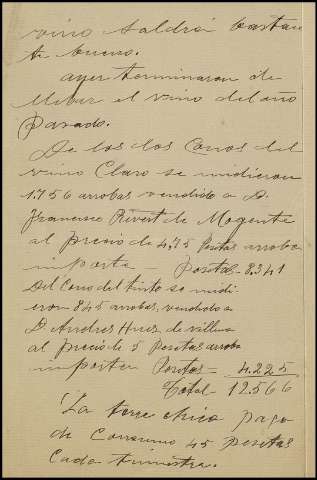 vino saldrá bastan
te bueno.
ayer terminaron de
llebar el vino del año
pasado.
De los dos Conos del
vino Claro se midieron
1.756 arrobas vendido a D.
Francisco Rivert de Mogente
al precio de 4,75 Pesetas arroba
importe — Pesetas - 8,341
Del Cono del tinto se midi
eron 845 arrobas, vendido a
D. Andres de villena
al Precio de 5 Pesetas arroba
importen Pesetas = 4.225
Total - 12.566
La torre chica paga
de Consumo 45 pesetas
Cada trimestre.